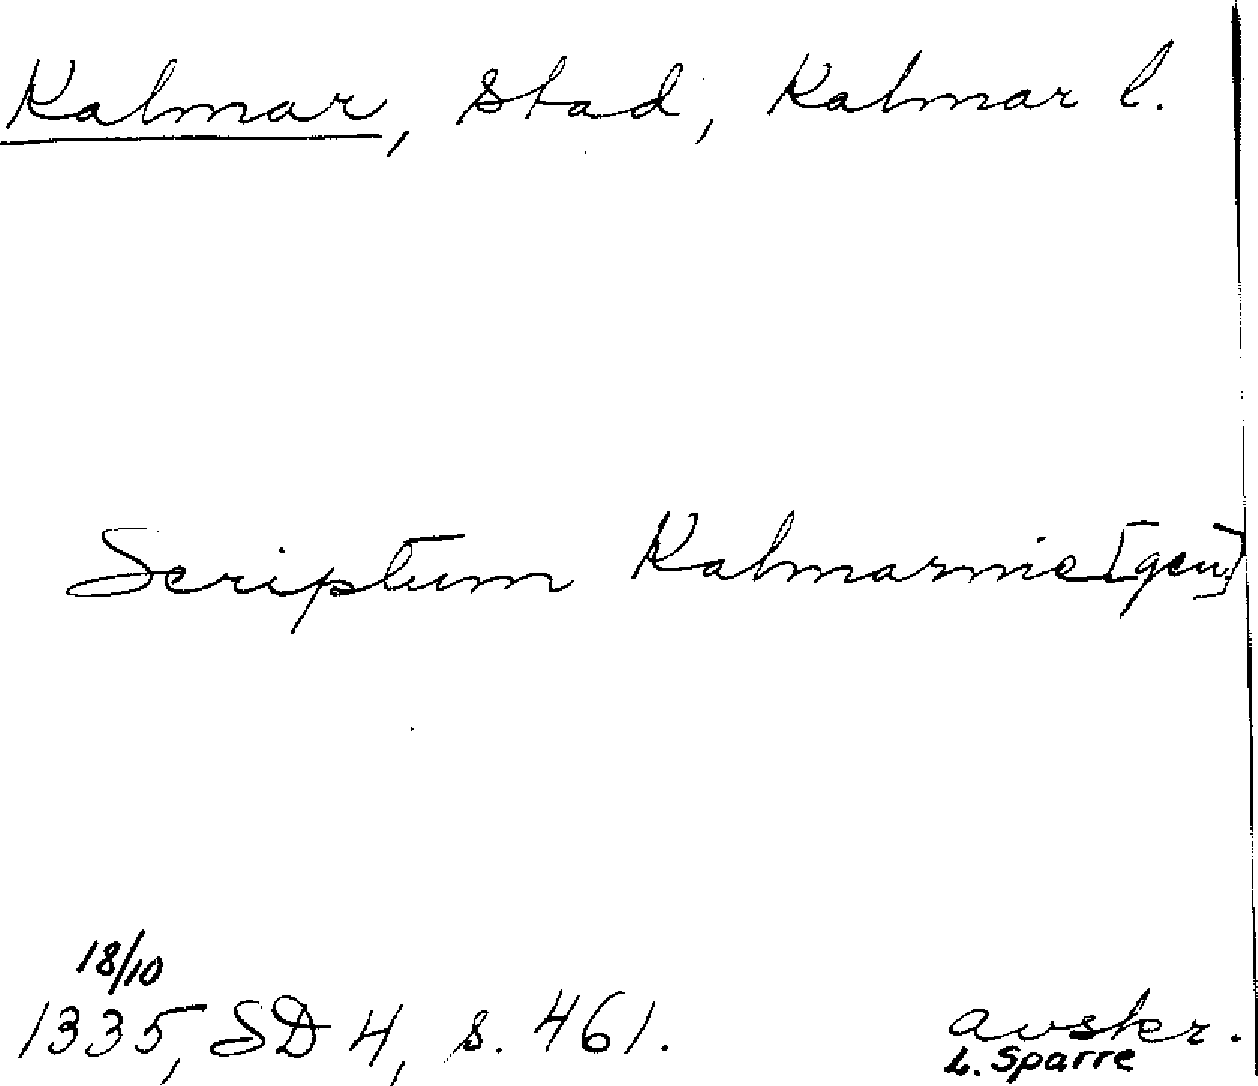 Kalmar, stad, Kalmar l.
Scriptum Kalmarnie [gen]
18/10
1335, SD 4, s. 461.
avskr.
L. Sparre